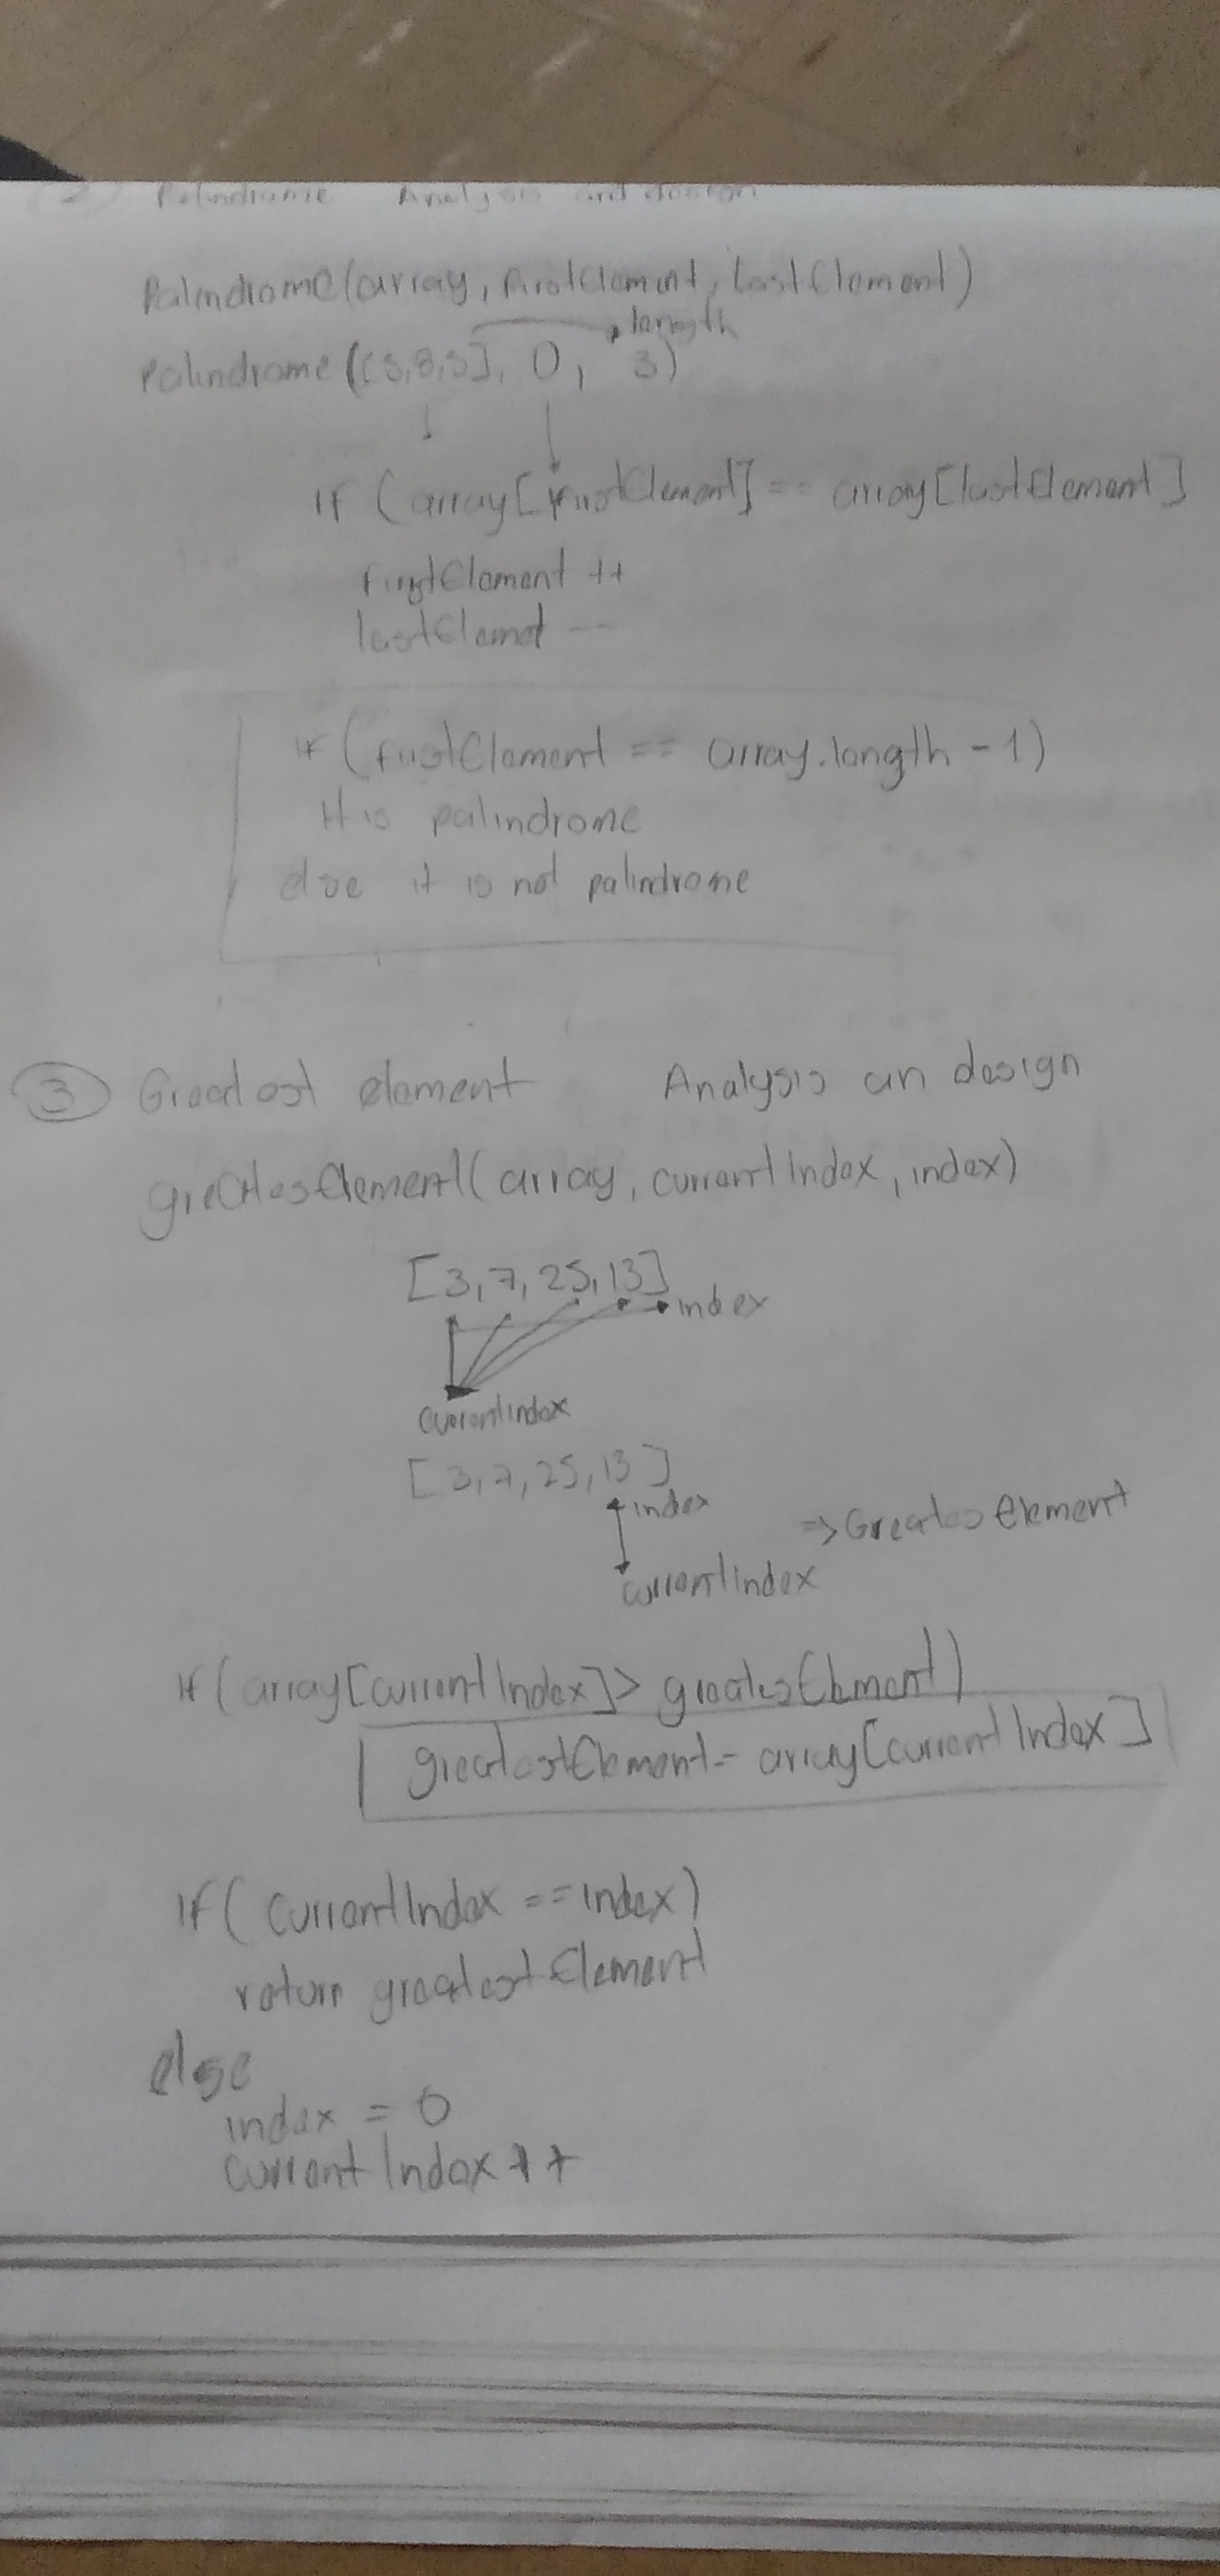 2) Palindrome Analysis and design
Palindrome(array, firstElement, lastElement)
length
Palindrome([3,8,3], 0, 3)
if (array[firstElement] == array[lastElement]
firstElement ++
lastElemet --
if (firstElement == array.length - 1)
It is palindrome
else it is not palindrome
3 Greatest element Analysis an design
greatesElement(array, currentIndex, index)
[3, 7, 25, 13]
index
currentIndex
[3, 7, 25, 13]
index
=> GreatesElement
currentIndex
if (array[currentIndex] > greatesElement)
greatestElement = array[currentIndex]
if (currentIndex == index)
return greatestElement
else
index = 0
currentIndex ++